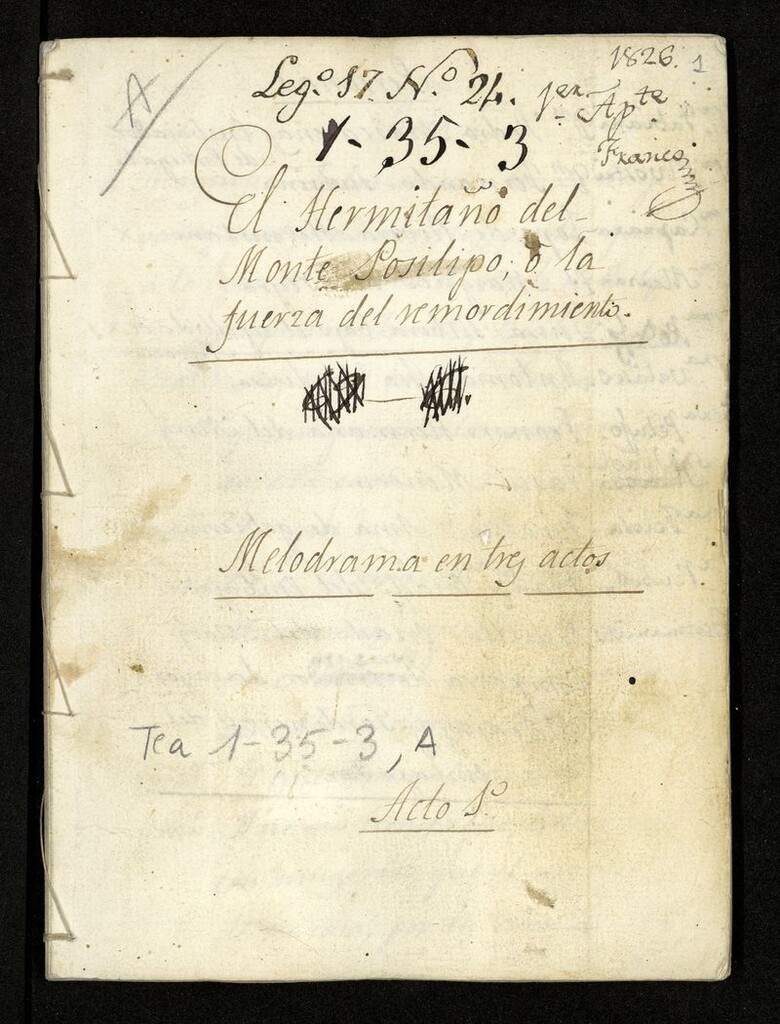 1826. 1
A
Leg.o 17. N.o 24. 1.er Ap.te
1-35-3
El Hermitaño del
Monte Posilipo, ò la
fuerza del remordimiento.
Melodrama en tres actos
Tea 1-35-3, A
Acto 1.o